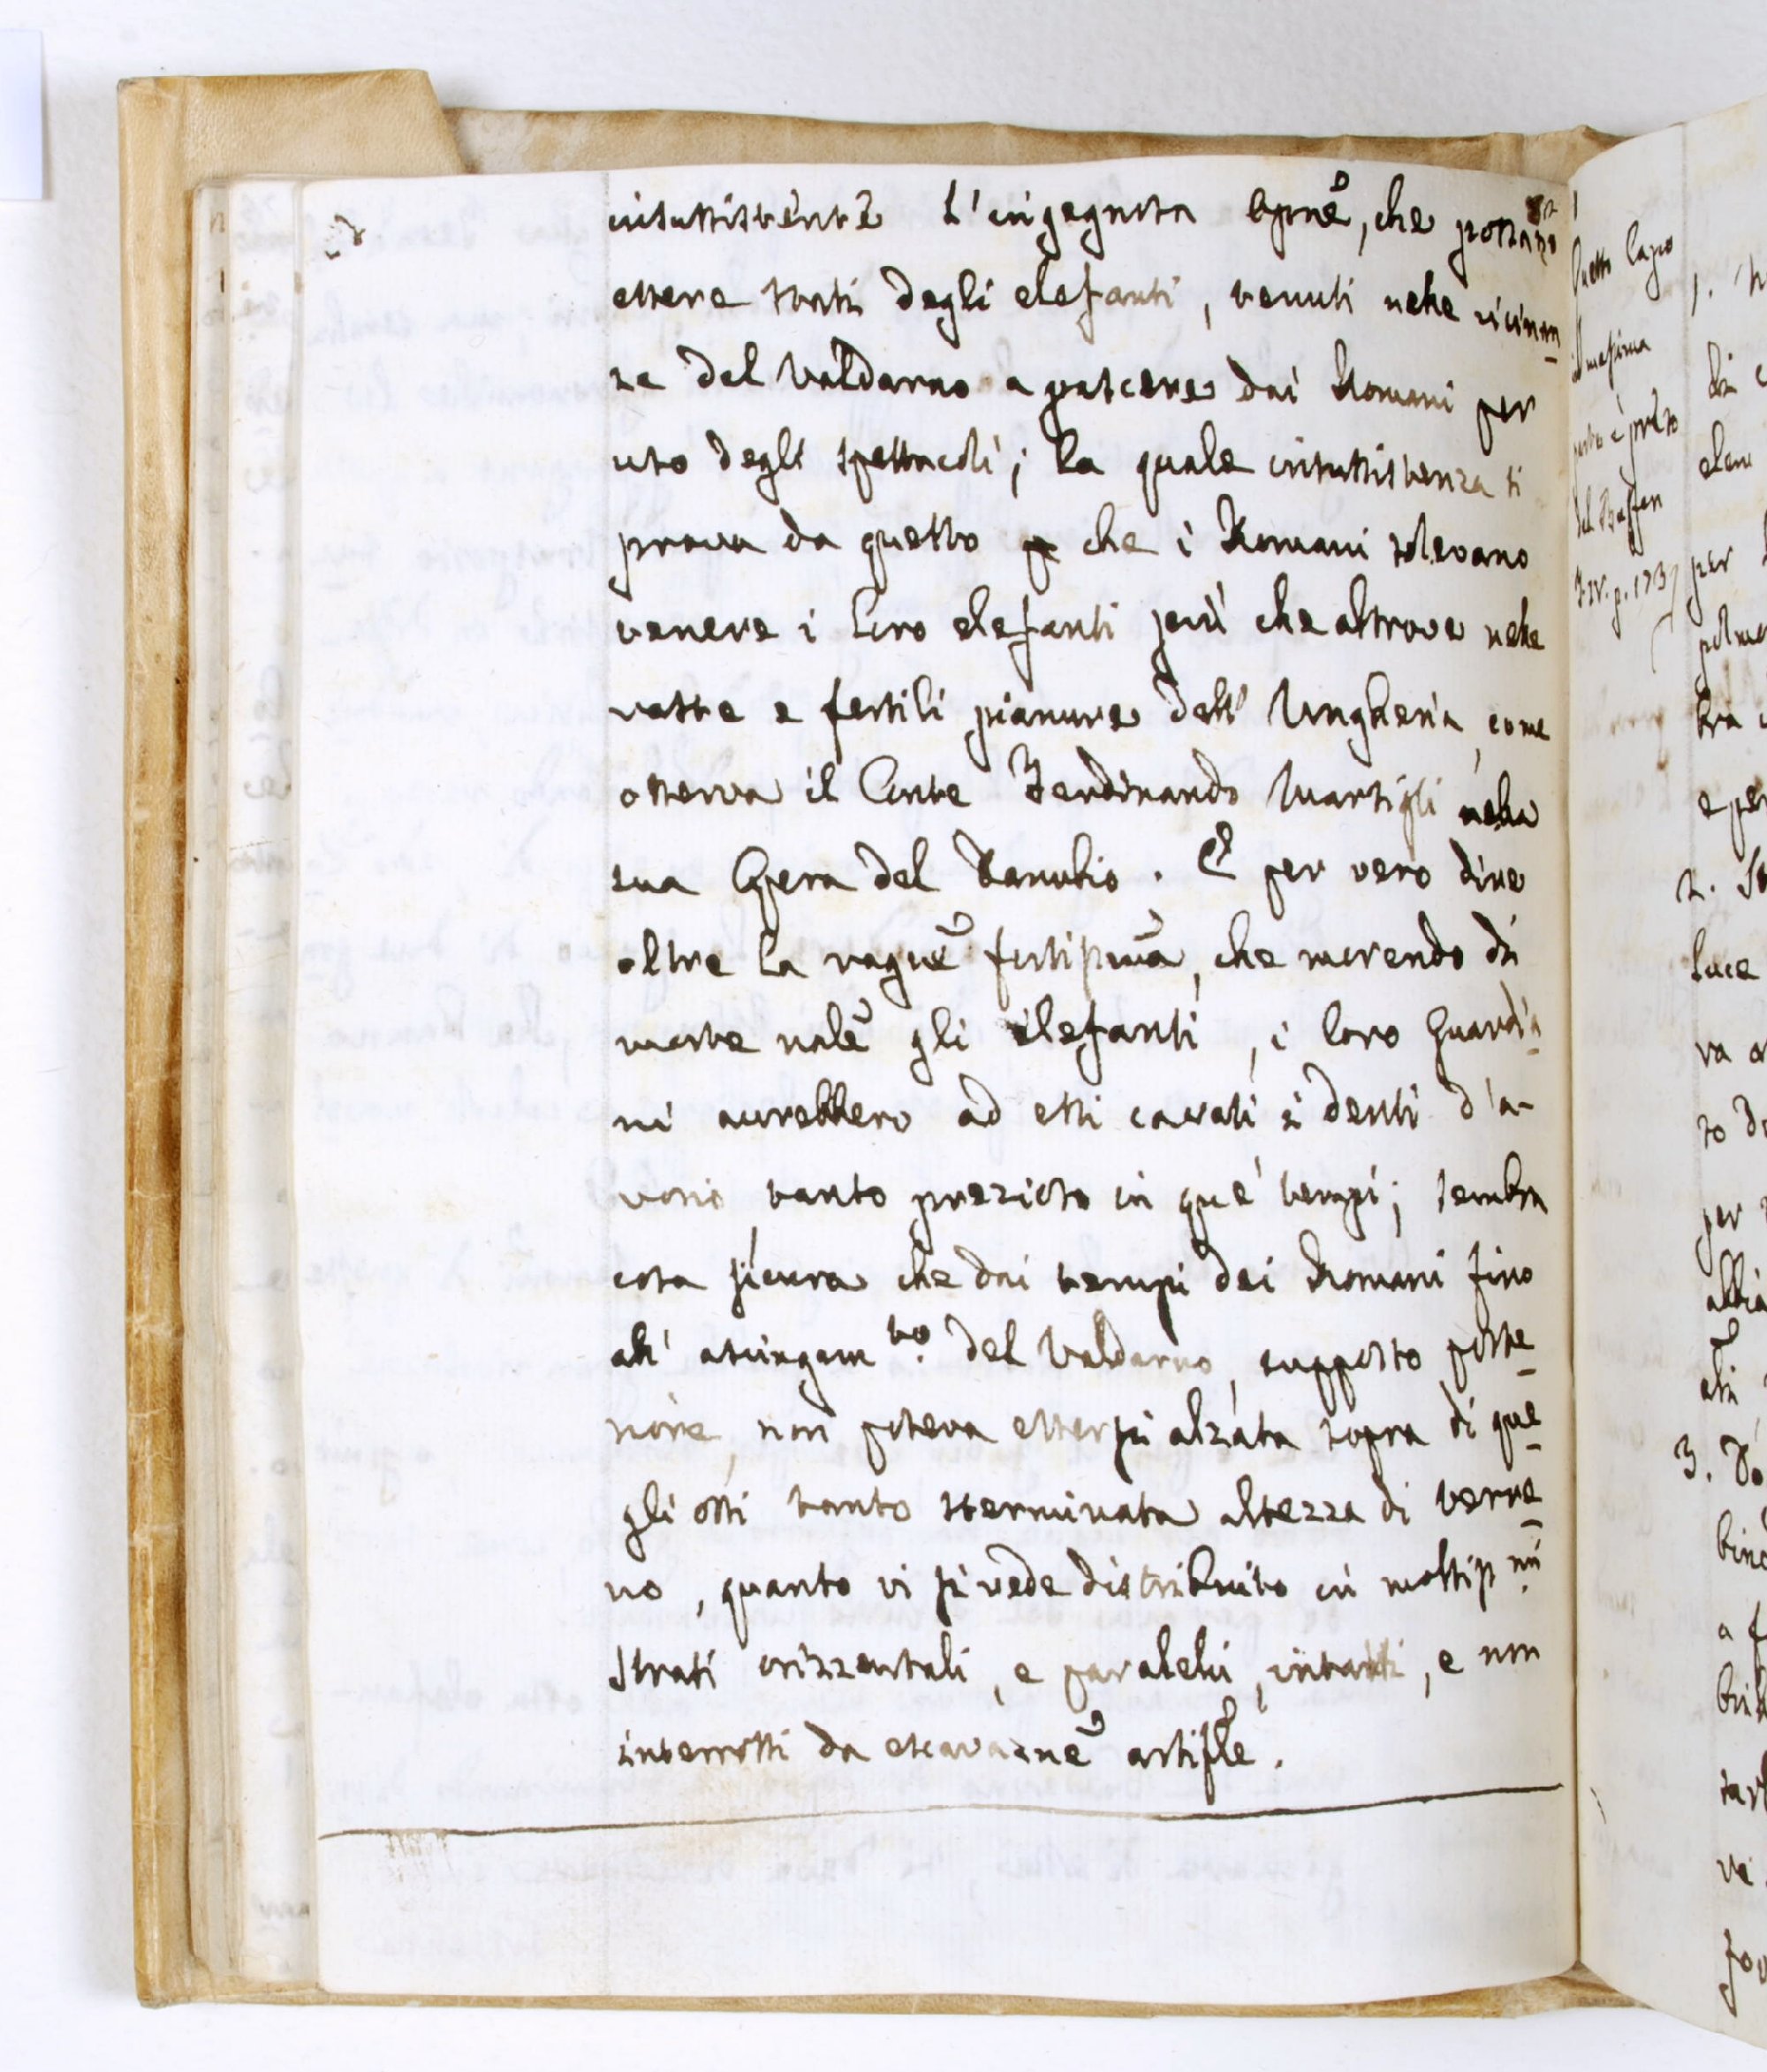 insussistente l'ingegnosa opne, che possano
essere stati degli elefanti, tenuti nelle vicinan
ze del Valdarno a pascere dai Romani per
uso degli spettacoli; la quale insussistenza si
prova da questo che i Romani solevano
tenere i loro elefanti più che altrove nelle
vaste e fertili pianure dell' Ungheria, come
osserva il Conte Ferdinando Marsigli nella
sua Opera del Danubio. E per vero dire
oltre la ragne fortissma, che morendo di
morte nale gli elefanti, i loro Guardia
ni avrebbero ad essi cavati i denti d'a-
vorio tanto prezioso in que' tempi; sembra
cosa sicura che dai tempi dei Romani fino
all' asciugamto. del Valdarno, supposto poste
riore, non poteva essersi alzata sopra di que
gli ossi tanto sterminata altezza di terre
no, quanto vi si vede distribuito in moltissmi
strati orizzontali, e paralelli, intatti, e non
interrotti da escavazne artifle.
Questo lapo
del Baffon
T. IV. p. 173